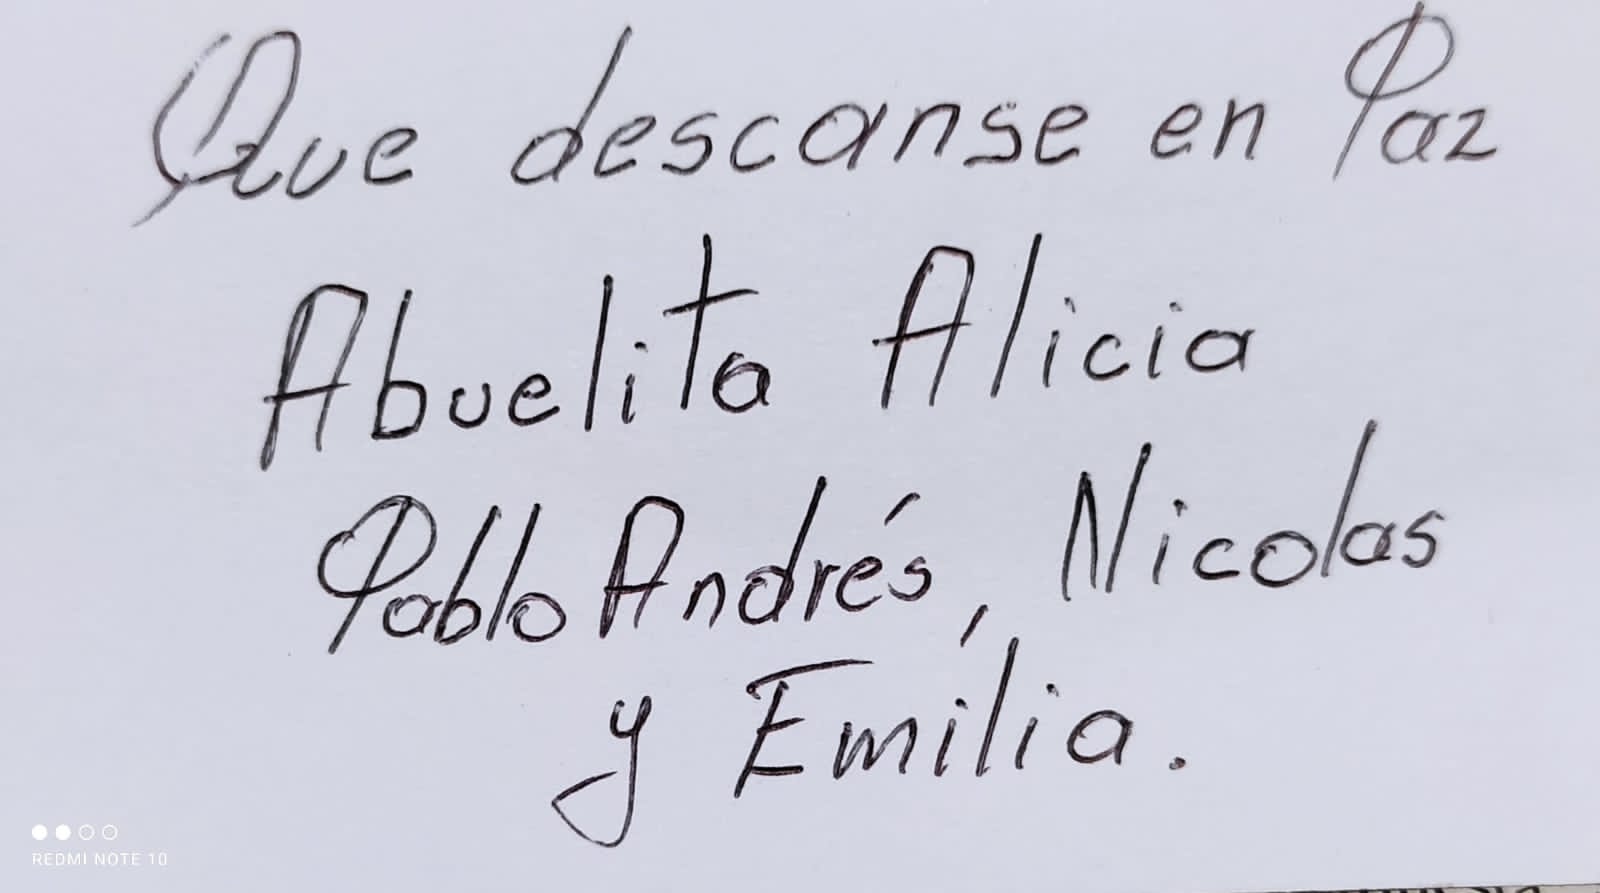 Que descanse en Paz
Abuelita Alicia
Pablo Andrés, Nicolas
y Emilia.
REDMI NOTE 10